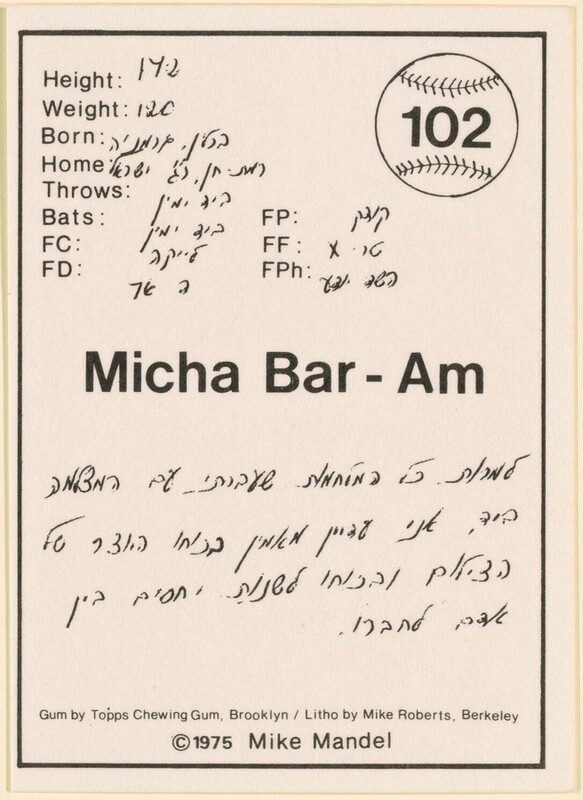 Height: 172
Weight: 120
102
Born: ברלין, גרמניה
Home: רמת-חן, ר"ג ישראל
Throws: ביד ימין
Bats: ביד ימין
FP: קודק
FC: לייקה
FF: טרי X
FD: די
FPh: השד יודע
Micha Bar-Am
למרות כל המלחמות שעברתי עם המצלמה
ביד, אני עדיין מאמין בכוחו היוצר של
הצילום ובכוחו לשנות יחסים בין
אדם לחברו.
Gum by Topps Chewing Gum, Brooklyn / Litho by Mike Roberts, Berkeley
©1975 Mike Mandel